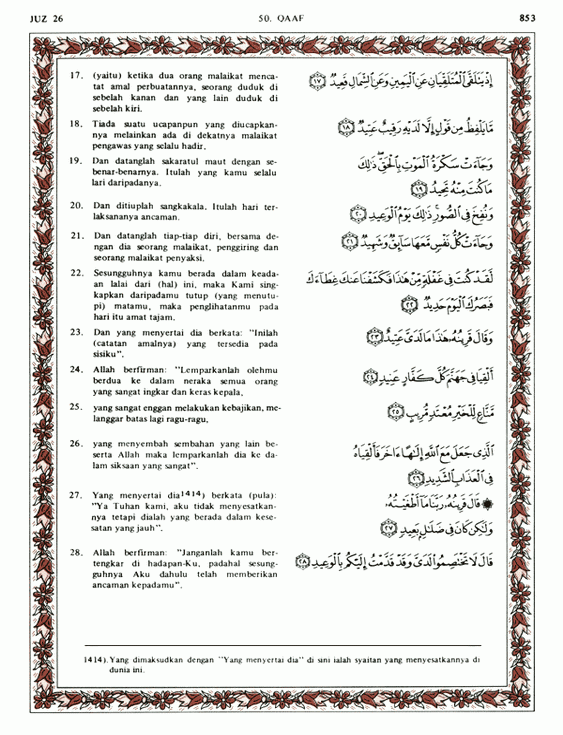 JUZ 26 50. QAAF 853
17. (yaitu) ketika dua orang malaikat menca-
tat amal perbuatannya, seorang duduk di
sebelah kanan dan yang lain duduk di
sebelah kiri.
إِذْ يَتَلَقَّى الْمُتَلَقِّيَانِ عَنِ الْيَمِينِ وَعَنِ الشِّمَالِ قَعِيدٌ ﴿١٧﴾
18. Tiada suatu ucapanpun yang diucapkan-
nya melainkan ada di dekatnya malaikat
pengawas yang selalu hadir.
مَا يَلْفِظُ مِن قَوْلٍ إِلَّا لَدَيْهِ رَقِيبٌ عَتِيدٌ ﴿١٨﴾
19. Dan datanglah sakaratul maut dengan se-
benar-benarnya. Itulah yang kamu selalu
lari daripadanya.
وَجَاءَتْ سَكْرَةُ الْمَوْتِ بِالْحَقِّ ۖ ذَٰلِكَ
مَا كُنتَ مِنْهُ تَحِيدُ ﴿١٩﴾
20. Dan ditiuplah sangkakala. Itulah hari ter-
laksananya ancaman.
وَنُفِخَ فِي الصُّورِ ۚ ذَٰلِكَ يَوْمُ الْوَعِيدِ ﴿٢٠﴾
21. Dan datanglah tiap-tiap diri, bersama de-
ngan dia seorang malaikat, penggiring dan
seorang malaikat penyaksi.
وَجَاءَتْ كُلُّ نَفْسٍ مَّعَهَا سَائِقٌ وَشَهِيدٌ ﴿٢١﴾
22. Sesungguhnya kamu berada dalam keada-
an lalai dari (hal) ini, maka Kami sing-
kapkan daripadamu tutup (yang menutu-
pi) matamu, maka penglihatanmu pada
hari itu amat tajam.
لَّقَدْ كُنتَ فِي غَفْلَةٍ مِّنْ هَٰذَا فَكَشَفْنَا عَنكَ غِطَاءَكَ
فَبَصَرُكَ الْيَوْمَ حَدِيدٌ ﴿٢٢﴾
23. Dan yang menyertai dia berkata: "Inilah
(catatan amalnya) yang tersedia pada
sisiku".
وَقَالَ قَرِينُهُ هَٰذَا مَا لَدَيَّ عَتِيدٌ ﴿٢٣﴾
24. Allah berfirman: "Lemparkanlah olehmu
berdua ke dalam neraka semua orang
yang sangat ingkar dan keras kepala,
أَلْقِيَا فِي جَهَنَّمَ كُلَّ كَفَّارٍ عَنِيدٍ ﴿٢٤﴾
25. yang sangat enggan melakukan kebajikan, me-
langgar batas lagi ragu-ragu,
مَّنَّاعٍ لِّلْخَيْرِ مُعْتَدٍ مُّرِيبٍ ﴿٢٥﴾
26. yang menyembah sembahan yang lain be-
serta Allah maka lemparkanlah dia ke da-
lam siksaan yang sangat".
الَّذِي جَعَلَ مَعَ اللَّهِ إِلَٰهًا آخَرَ فَأَلْقِيَاهُ
فِي الْعَذَابِ الشَّدِيدِ ﴿٢٦﴾
27. Yang menyertai dia1414) berkata (pula):
"Ya Tuhan kami, aku tidak menyesatkan-
nya tetapi dialah yang berada dalam kese-
satan yang jauh".
۞ قَالَ قَرِينُهُ رَبَّنَا مَا أَطْغَيْتُهُ
وَلَٰكِن كَانَ فِي ضَلَالٍ بَعِيدٍ ﴿٢٧﴾
28. Allah berfirman: "Janganlah kamu ber-
tengkar di hadapan-Ku, padahal sesung-
guhnya Aku dahulu telah memberikan
ancaman kepadamu".
قَالَ لَا تَخْتَصِمُوا لَدَيَّ وَقَدْ قَدَّمْتُ إِلَيْكُم بِالْوَعِيدِ ﴿٢٨﴾
1414). Yang dimaksudkan dengan "Yang menyertai dia" di sini ialah syaitan yang menyesatkannya di
dunia ini.